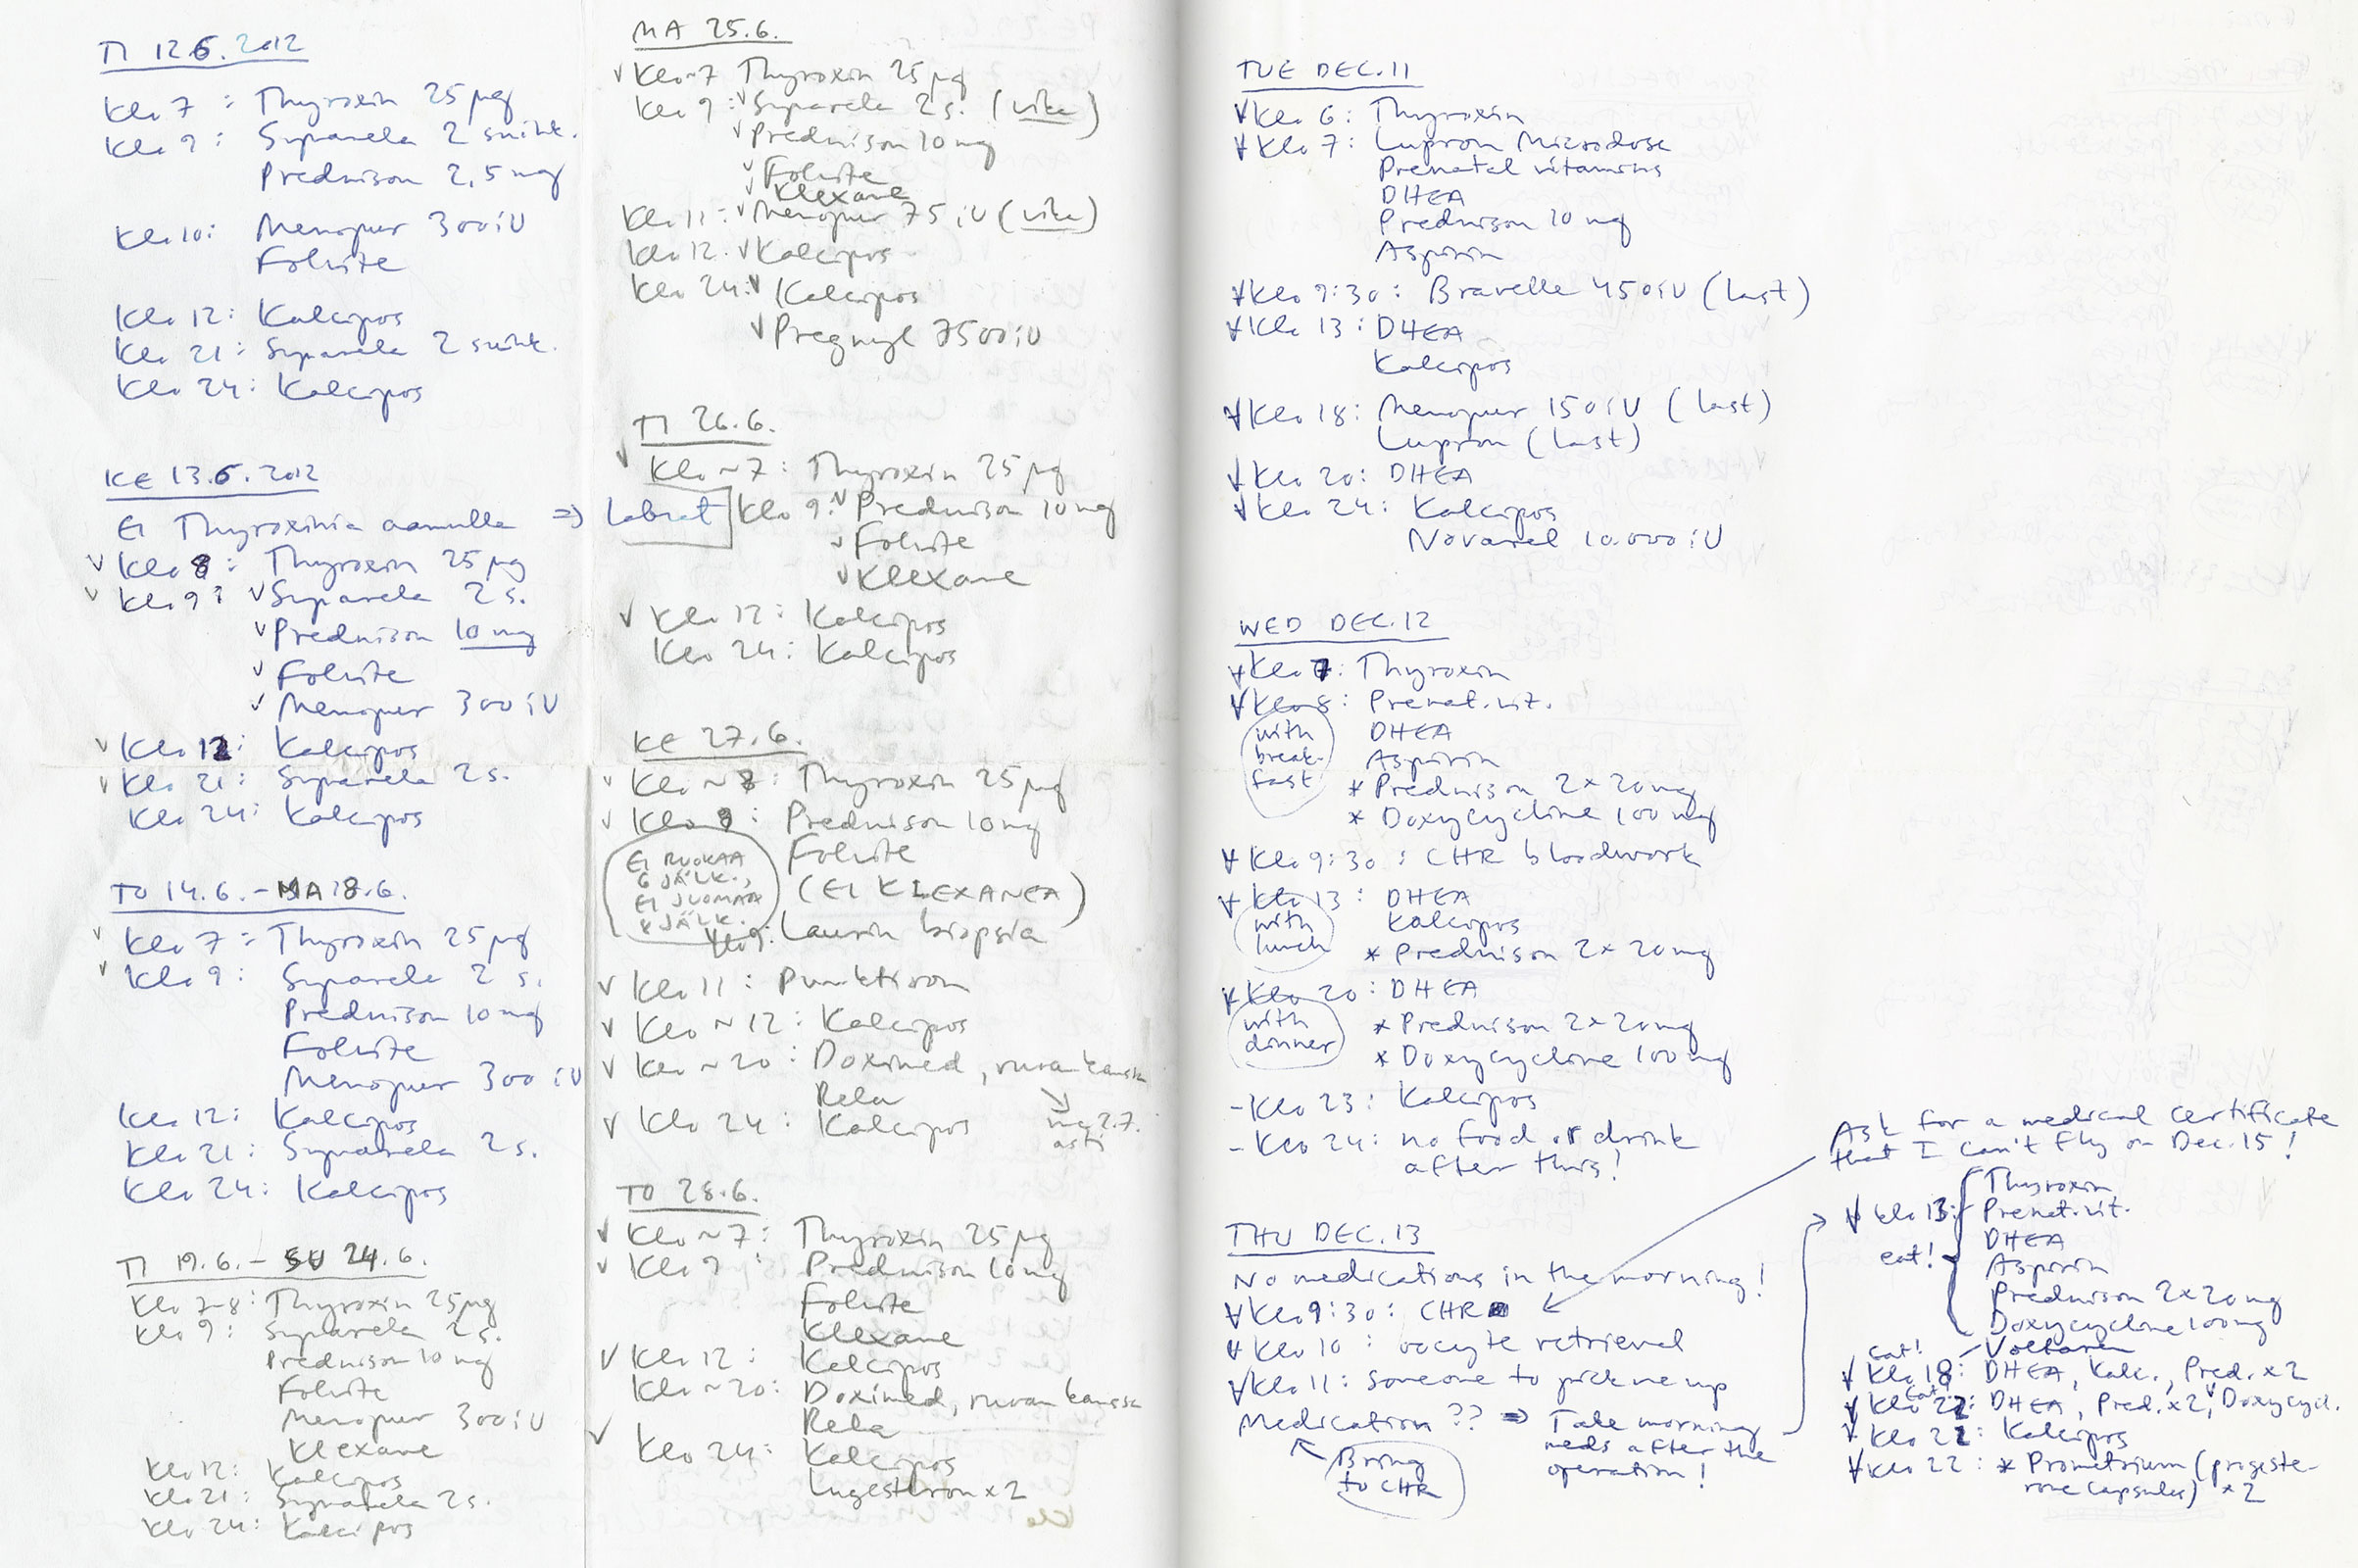 TI 12.6.2012
Klo 7 : Thyroxin 25 µg
Klo 9 : Suparela 2 suihk.
Prednison 2,5 mg
Klo 10: Menopur 300 iU
Folvite
Klo 12: Kalcipos
Klo 21: Suparela 2 suihk.
Klo 24: Kalcipos
KE 13.6.2012
EI Thyroxinia aamulla => Labrat
v Klo 8 : Thyroxin 25 µg
v Klo 9 : v Suparela 2 s.
v Prednison 10 mg
v Folvite
v Menopur 300 iU
v Klo 12: Kalcipos
v Klo 21: Suparela 2 s.
Klo 24: Kalcipos
TO 14.6. - MA 18.6.
v Klo 7 : Thyroxin 25 µg
v Klo 9 : Suparela 2 s.
Prednison 10 mg
Folvite
Menopur 300 iU
Klo 12: Kalcipos
Klo 21: Suparela 2 s.
Klo 24: Kalcipos
TI 19.6. - SU 24.6.
Klo 7-8: Thyroxin 25 µg
Klo 9 : Suparela 2 s.
Prednison 10 mg
Folvite
Menopur 300 iU
Klexane
Klo 12: Kalcipos
Klo 21: Suparela 2 s.
Klo 24: Kalcipos
MA 25.6.
v Klo ~7 Thyroxin 25 µg
Klo 9 : v Suparela 2 s. (vika)
v Prednison 10 mg
v Folvite
v Klexane
Klo 11: v Menopur 75 iU (vika)
Klo 12: v Kalcipos
Klo 24: v Kalcipos
v Pregnyl 7500 iU
TI 26.6.
v Klo ~7 : Thyroxin 25 µg
Klo 9: v Prednison 10 mg
v Folvite
v Klexane
v Klo 12: Kalcipos
Klo 24: Kalcipos
KE 27.6.
v Klo ~8: Thyroxin 25 µg
v Klo 9 : Prednison 10 mg
Folvite
(EI KLEXANEA)
EI RUOKAA
6 JÄLK.,
EI JUOMAA
8 JÄLK.
Klo 9: Laurin biopsia
v Klo 11 : Punktioon
v Klo ~12: Kalcipos
v Klo ~20 : Doximed, ruuan kanssa
Rela
ma 2.7.
asti
v Klo 24 : Kalcipos
TO 28.6.
v Klo ~7: Thyroxin 25 µg
v Klo 9 : Prednison 10 mg
Folvite
Klexane
v Klo 12: Kalcipos
Klo ~20: Doximed, ruuan kanssa
Rela
v Klo 24: Kalcipos
Lugesteron x 2
TUE DEC.11
v Klo 6: Thyroxin
v Klo 7: Lupron Microdose
Prenatal vitamins
DHEA
Prednison 10 mg
Aspirin
v Klo 9:30 : Bravelle 450 iU (last)
v Klo 13 : DHEA
Kalcipos
v Klo 18: Menopur 150 iU (last)
Lupron (last)
v Klo 20: DHEA
v Klo 24: Kalcipos
Novarel 10.000 iU
WED DEC.12
v Klo 7: Thyroxin
v Klo 8: Prenat. vit.
with
break-
fast
DHEA
Aspirin
* Prednison 2 x 20 mg
* Doxycycline 100 mg
v Klo 9:30 : CHR bloodwork
v Klo 13 : DHEA
with
lunch
Kalcipos
* Prednison 2 x 20 mg
v Klo 20 : DHEA
with
dinner
* Prednison 2 x 20 mg
* Doxycyclone 100 mg
- Klo 23: Kalcipos
- Klo 24: no food or drink
after this!
THU DEC.13
No medications in the morning!
v Klo 9:30: CHR
v Klo 10 : oocyte retrieval
v Klo 11: someone to pick me up
Medication ?? => Take morning
meds after the
operation!
Bring
to CHR
Ask for a medical certificate
that I can't fly on Dec.15!
v Klo 13:
eat!
Thyroxin
Prenat. vit.
DHEA
Aspirin
Prednison 2x20 mg
Doxycyclone 100 mg
Voltaren
eat!
v Klo 18: DHEA, Kalc., Pred. x 2
eat!
v Klo 22: DHEA, Pred. x 2, v Doxycycl.
v Klo 22: Kalcipos
v Klo 22 : * Prometrium (progeste-
rone capsules) x 2